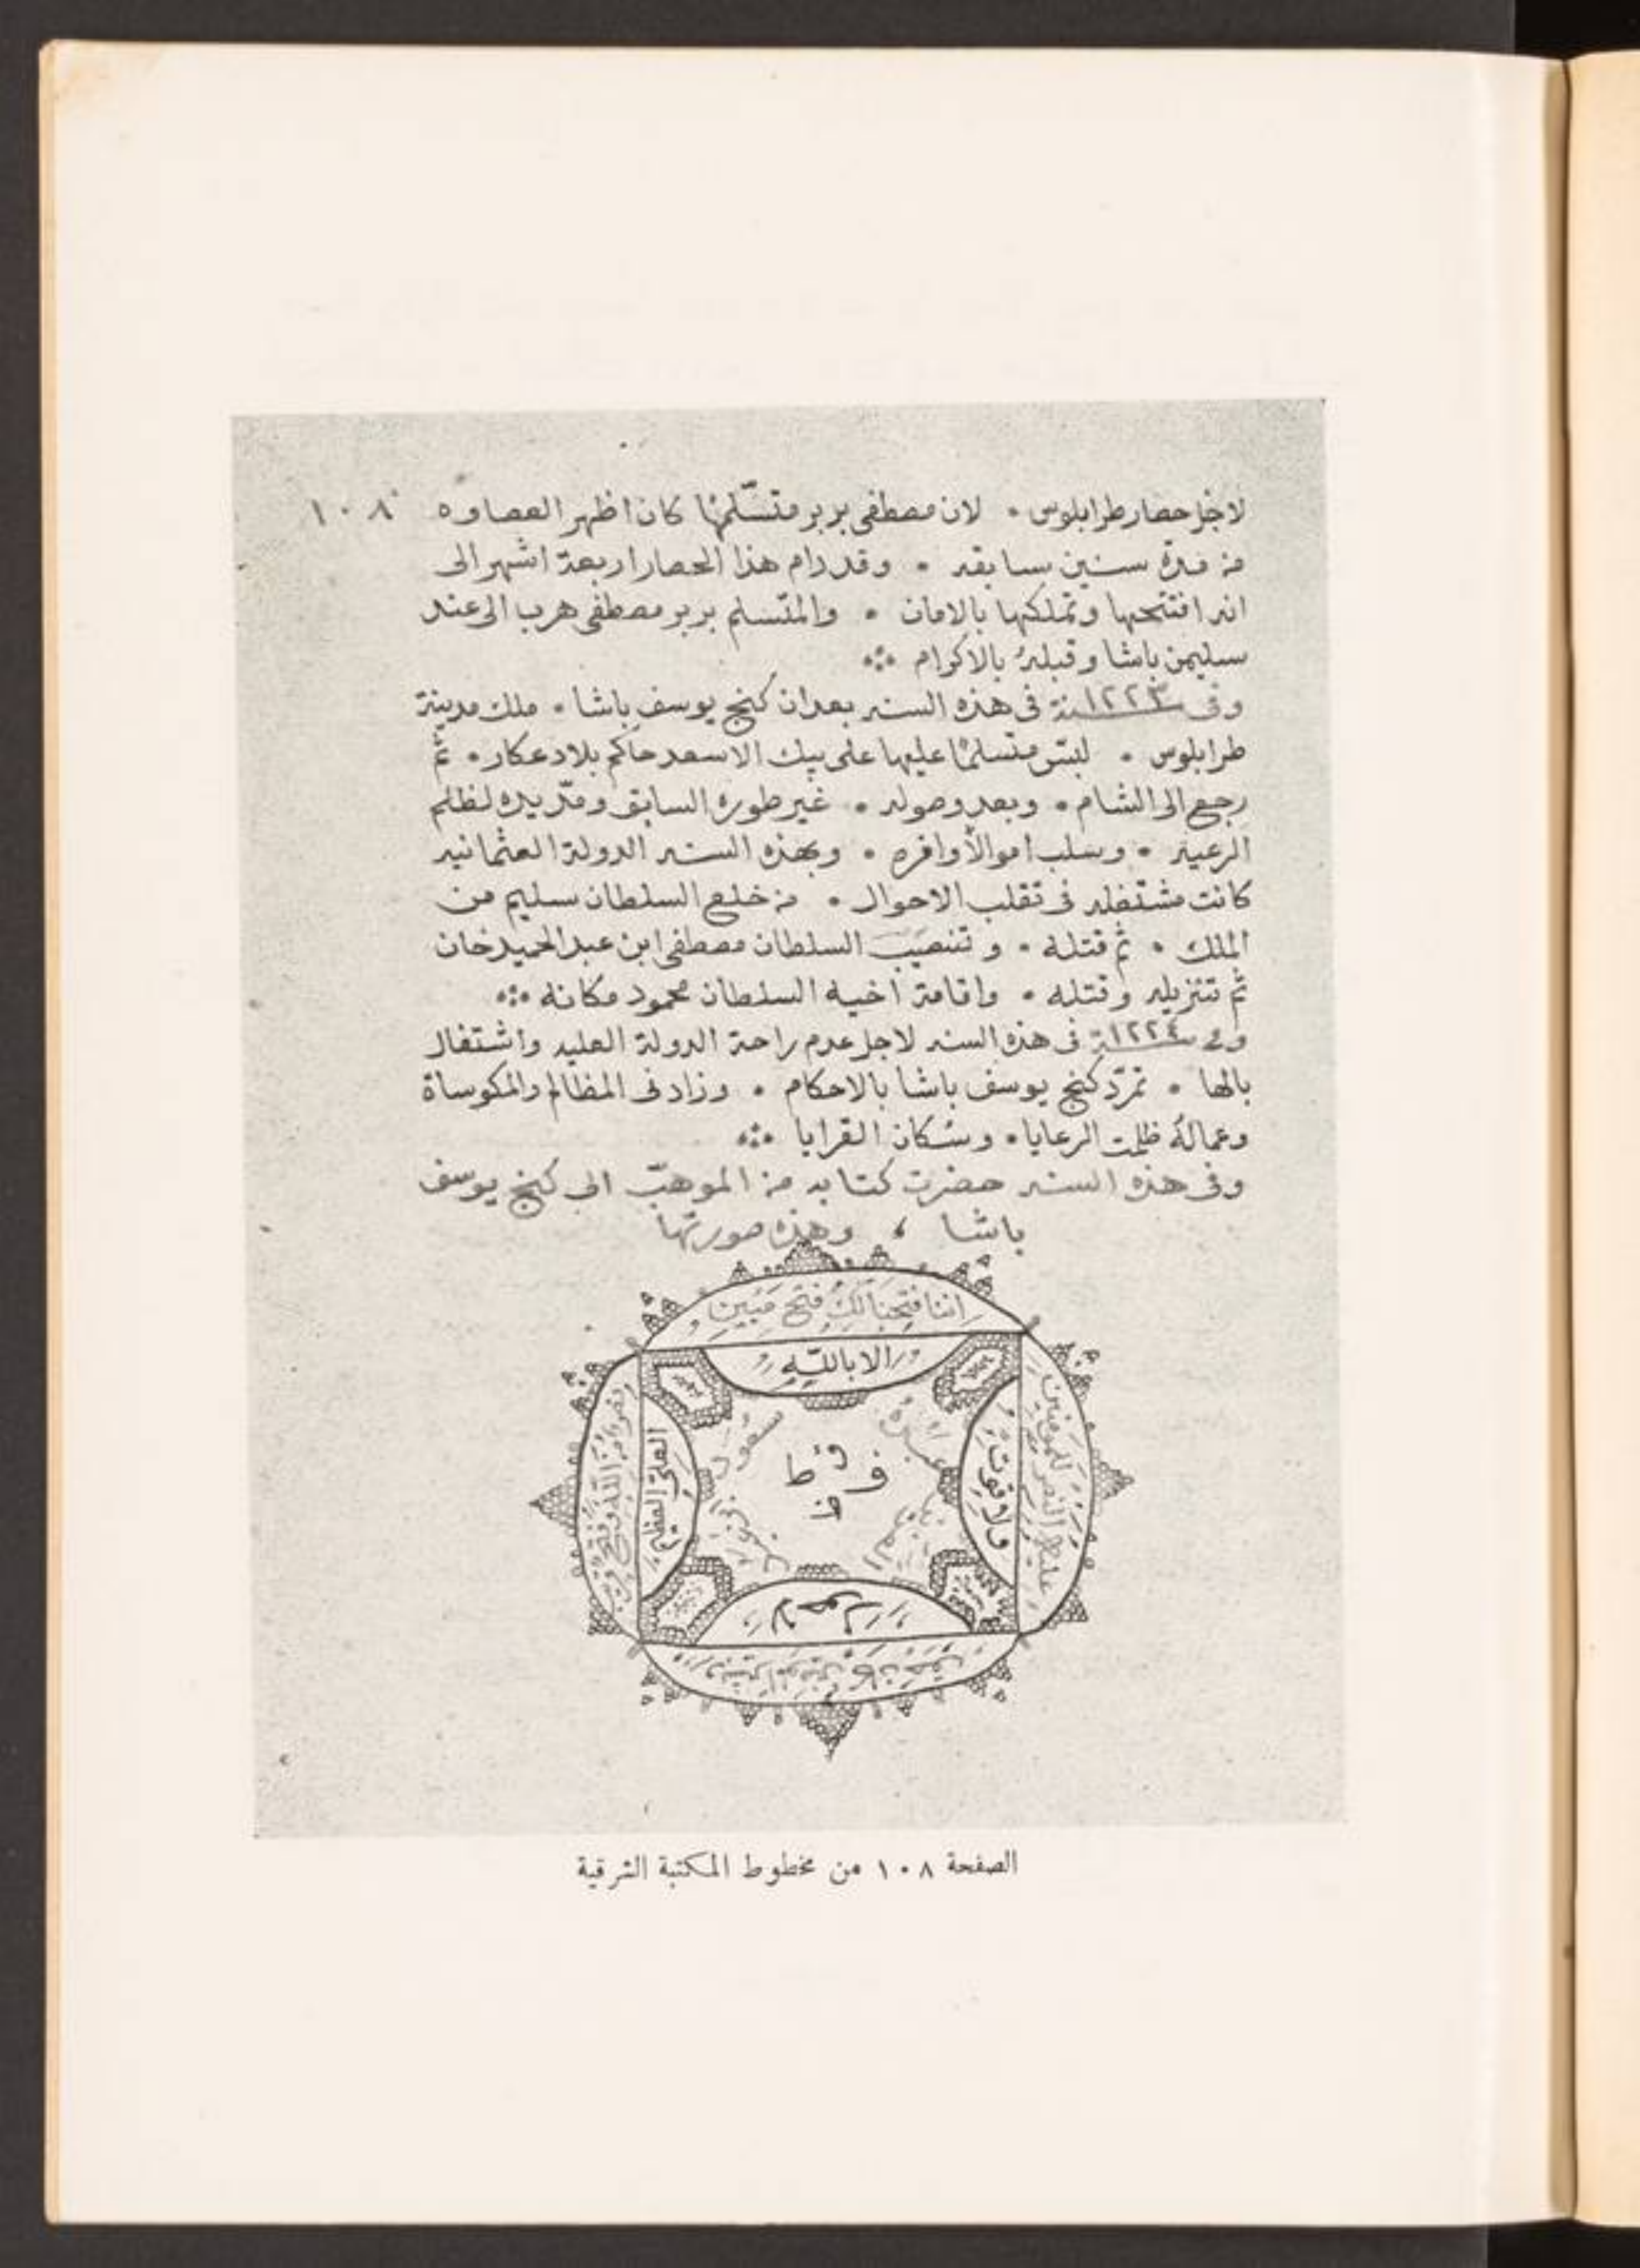 لاجل حصار طرابلوس • لان مصطفى بربر متسّلمها كان اظهر العصاوه ١٠٨
من مدة سنين سابقه • وقد دام هذا الحصار اربعة اشهر الى
انه افتتحها وتملكها بالامان • والمتسلم بربر مصطفى هرب الى عند
سليمن باشا وقبله بالاكرام
وفى سنة ١٢٢٣ فى هذه السنه بعد ان كنج يوسف باشا • ملك مدينة
طرابلوس • لبّس متسلمًا عليها على بيك الاسعد حاكم بلاد عكار • ثم
رجع الى الشام • وبعد وصوله • غير طوره السابق ومدّ يده لظلم
الرعيه • وسلب اموالاً وافره • وبهذه السنه الدولة العثمانيه
كانت مشتغله فى تقلب الاحوال • من خلع السلطان سليم من
الملك • ثم قتله • وتنصيب السلطان مصطفى ابن عبد الحميد خان
ثم تنزيله وقتله • واقامة اخيه السلطان محمود مكانه
وفى سنة ١٢٢٤ فى هذه السنه لاجل عدم راحة الدولة العليه واشتغال
بالها • تمرّد كنج يوسف باشا بالاحكام • وزاد فى المظالم والمكوساة
وعمالهُ ظلمت الرعايا • وسُكان القرايا
وفى هذه السنه حضرت كتابه من الموهبّ الى كنج يوسف
باشا ، وهذه صورتها
اننا فتحنا لك فتح مبين
الا بالله
ولا قوت
العلى العظيم
نصرا من الله وفتح قريب
للمومنين
ف
ط
الصفحة ١٠٨ من مخطوط المكتبة الشرقية